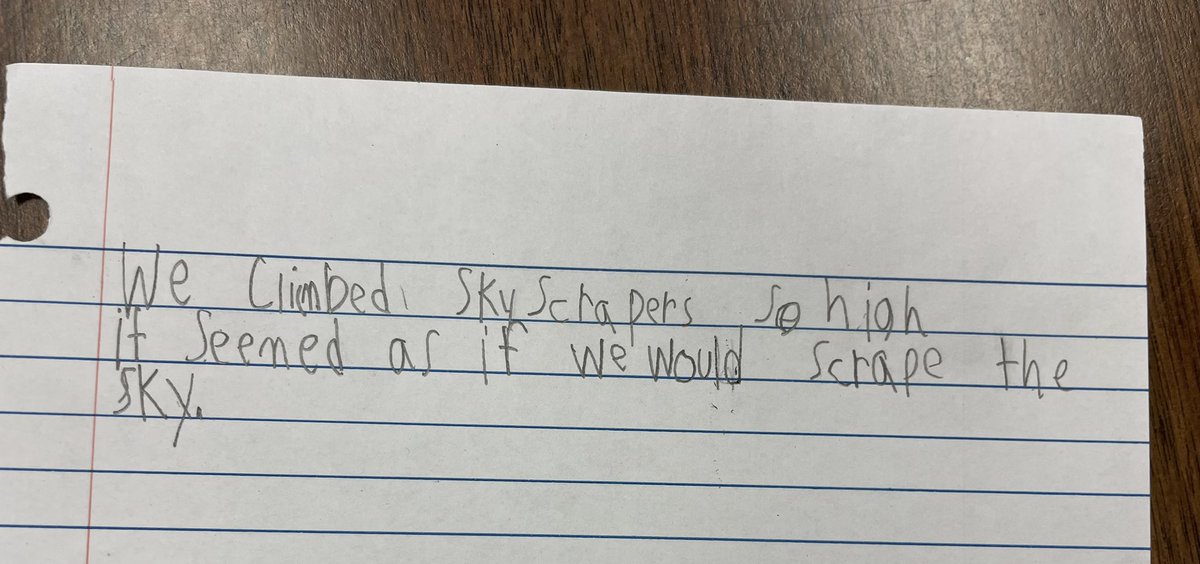 We Climbed Sky Scrapers so high
it seemed as if we would scrape the
sky.